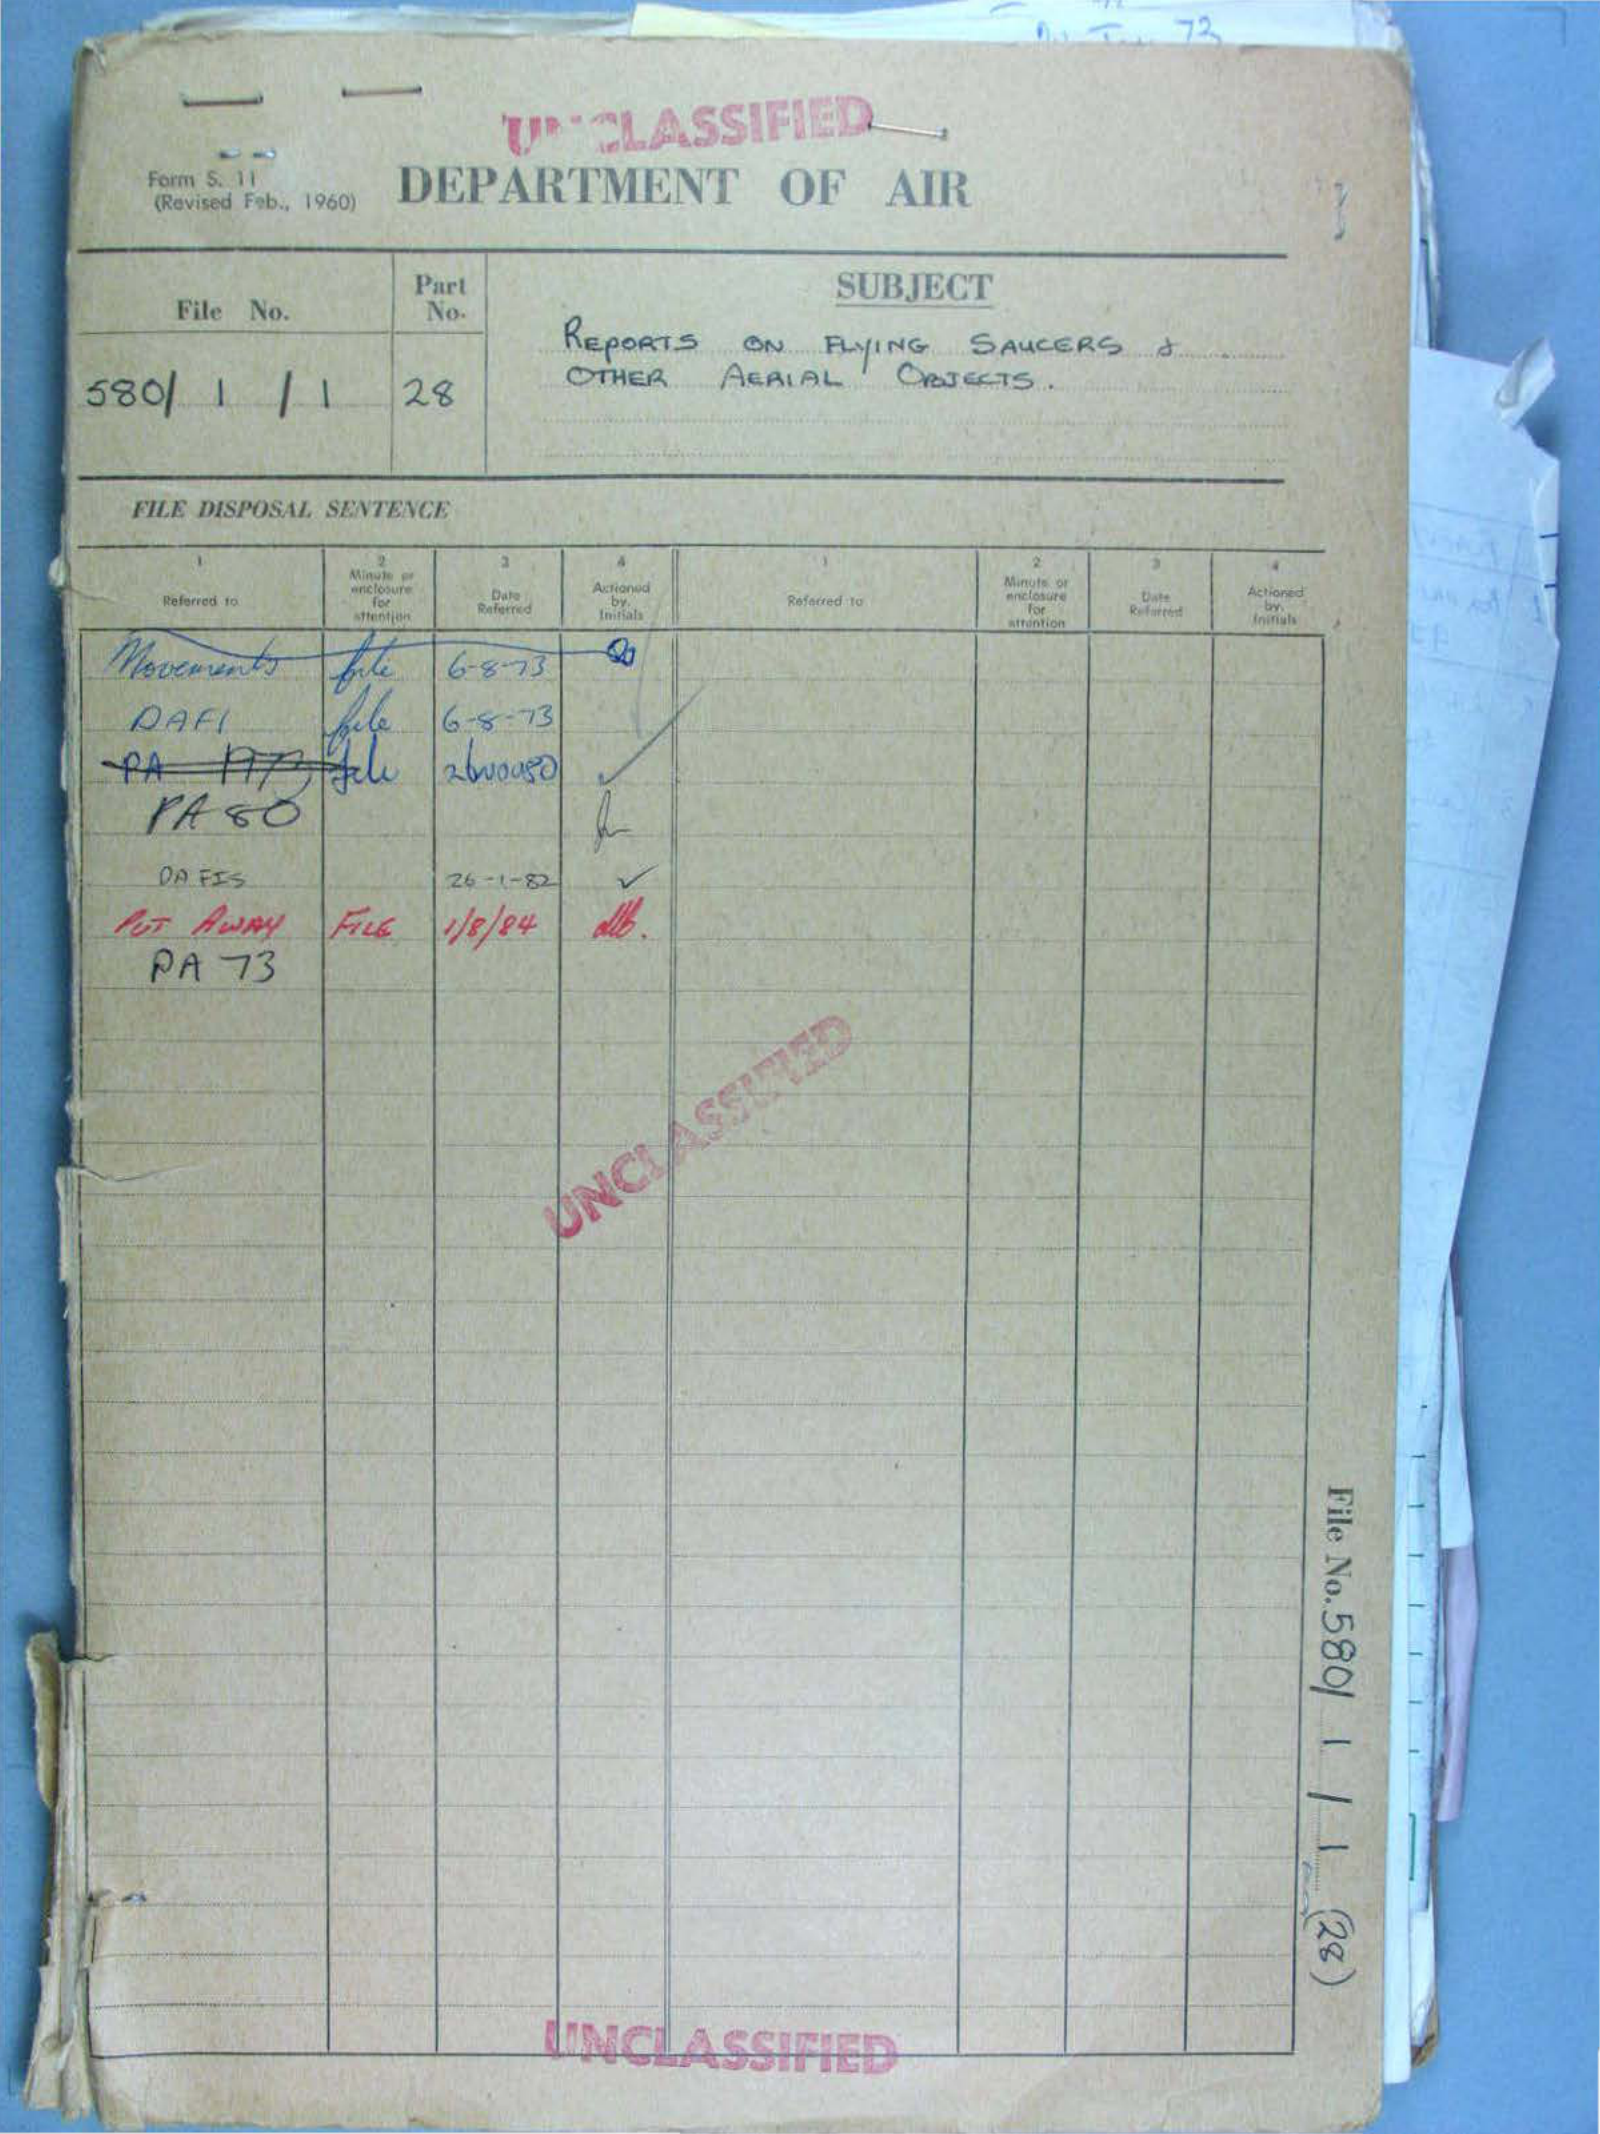 72
UNCLASSIFIED
Form S. 11
(Revised Feb., 1960)
DEPARTMENT OF AIR
File No.
Part
No.
SUBJECT
REPORTS ON FLYING SAUCERS &
OTHER AERIAL OBJECTS.
580/ 1 / 1
28
FILE DISPOSAL SENTENCE
1 2 3 4 1 2 3 4
Referred to Minute or enclosure for attention Date Referred Actioned by. Initials Referred to Minute or enclosure for attention Date Referred Actioned by. Initials
Movements file 6-8-73
DAFI file 6-8-73
PA 1973 file 26NOV80 ✓
PA 80
DAFIS 26-1-82 ✓
PUT AWAY FILE 1/8/84
PA 73
UNCLASSIFIED
File No. 580/ 1 / 1 (28)
UNCLASSIFIED